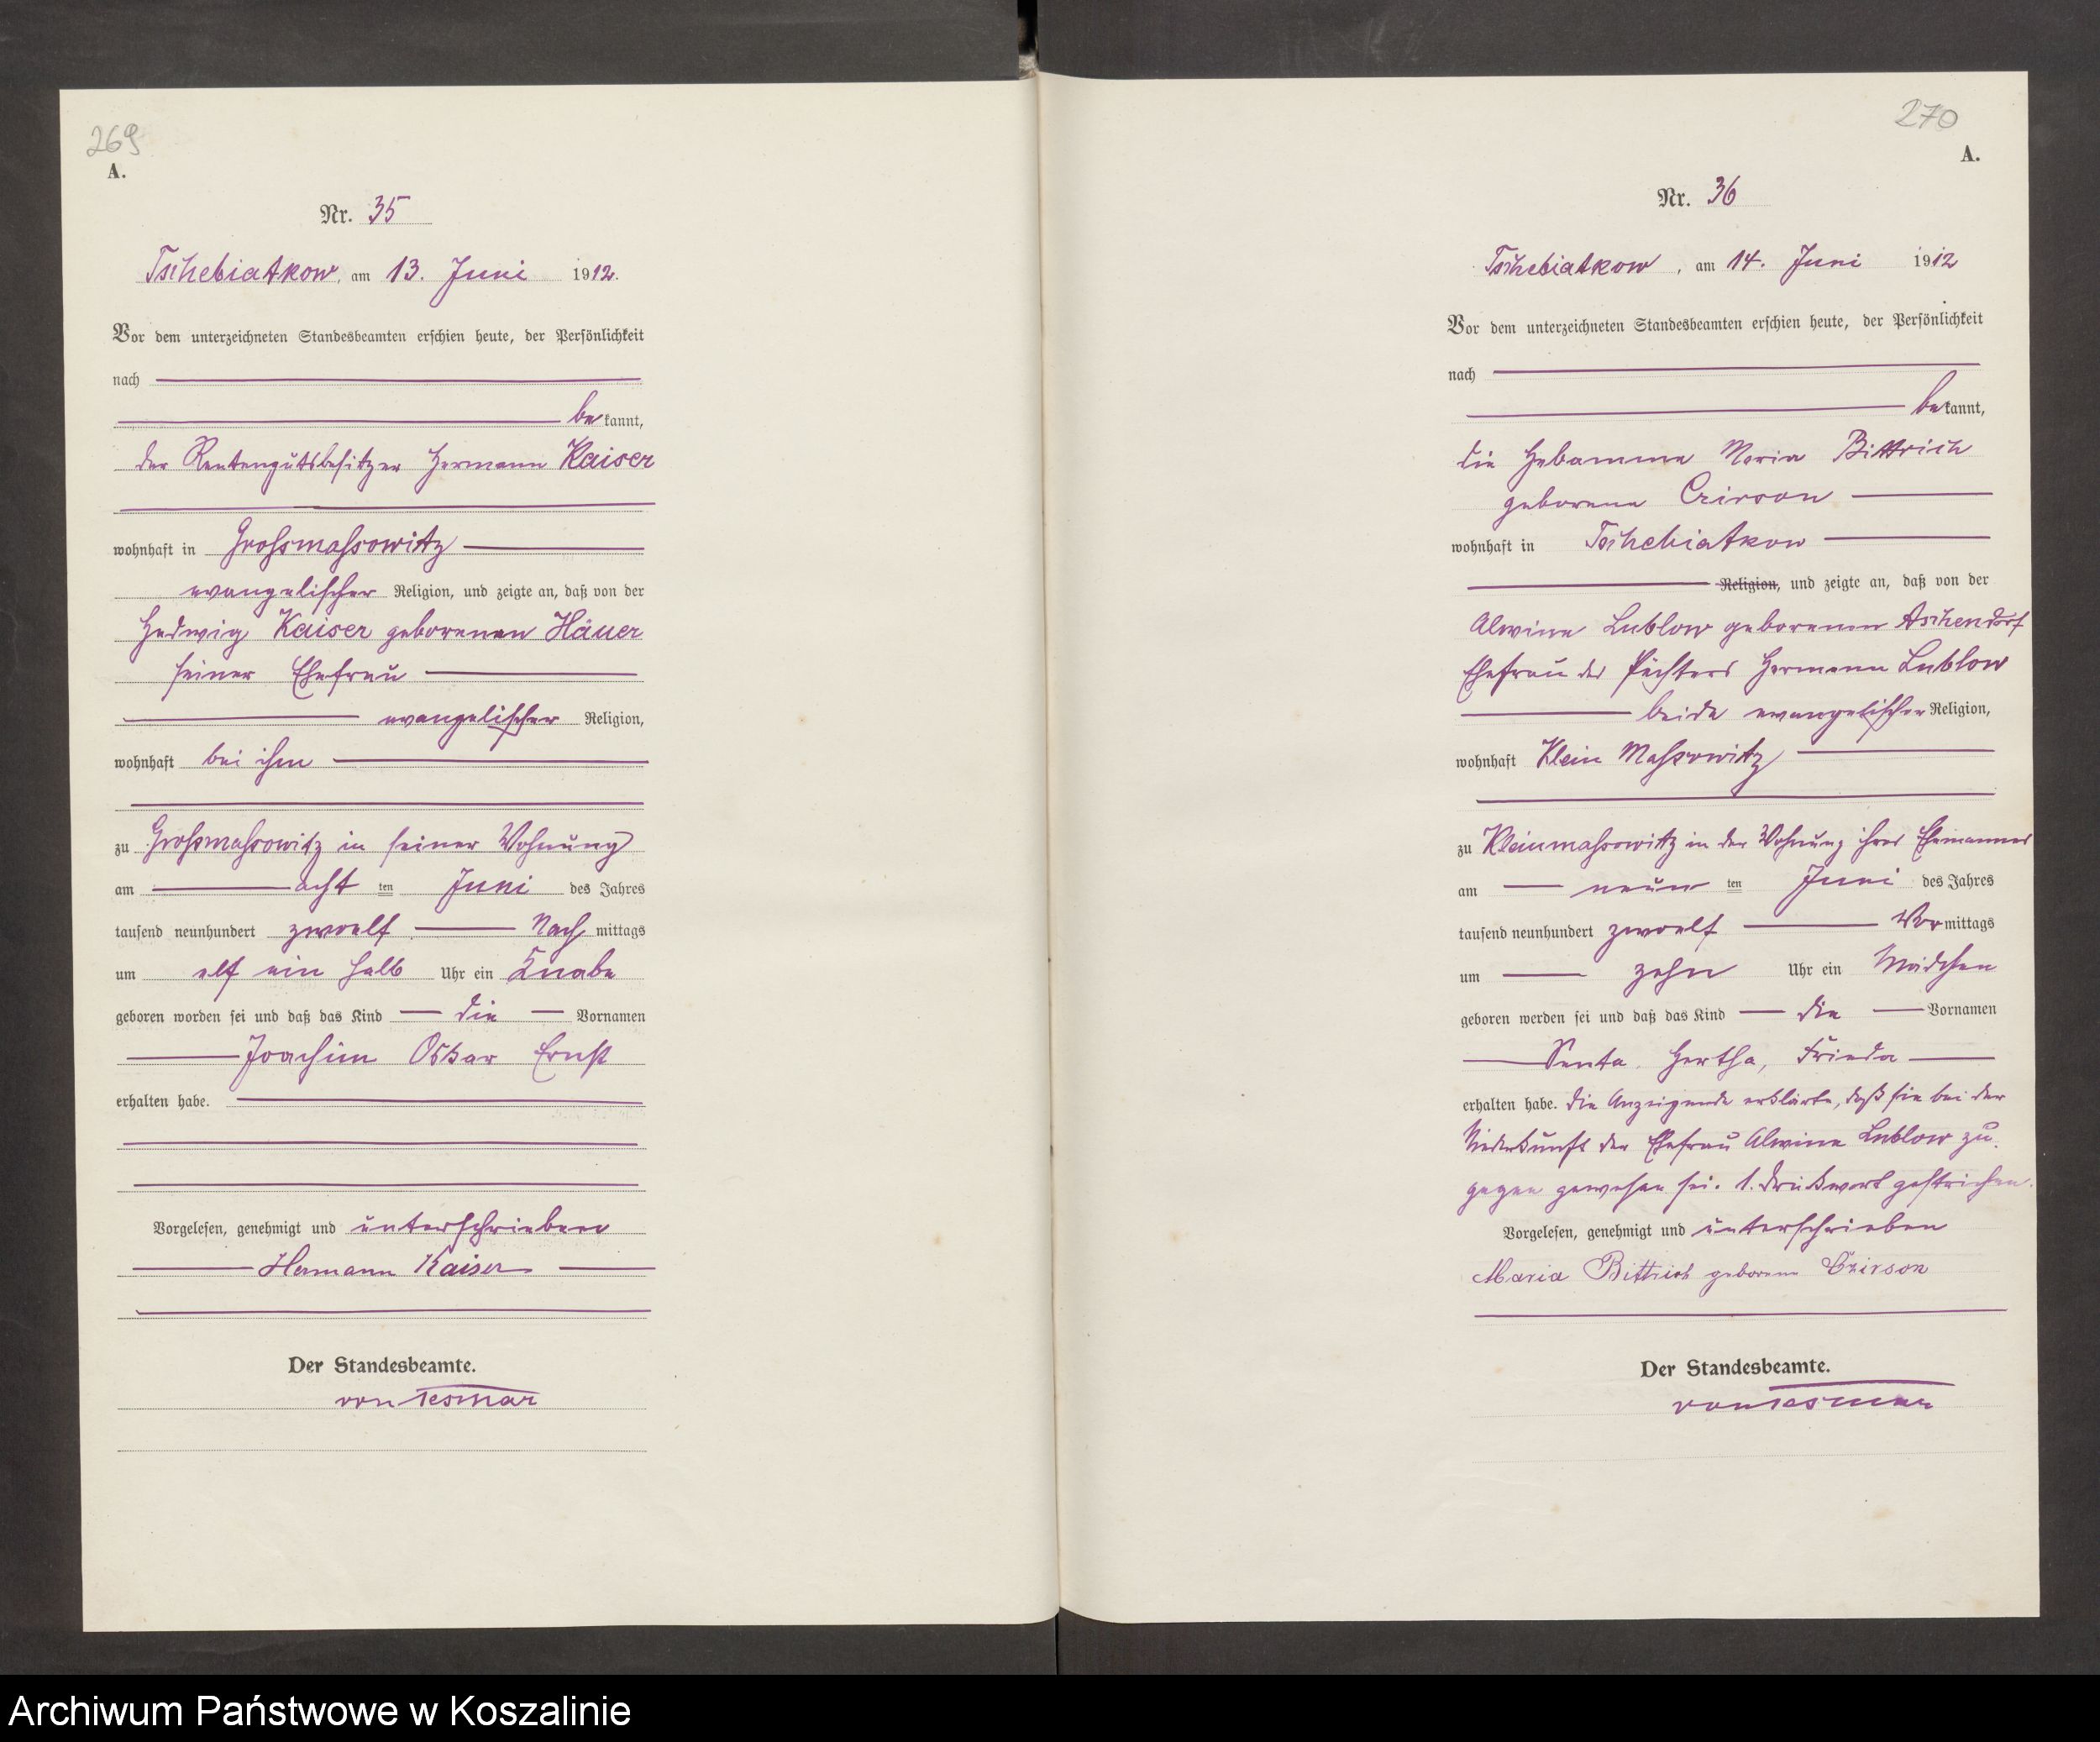 269
A.
Nr. 35
Tschebiatkow, am 13. Juni 1912.
Vor dem unterzeichneten Standesbeamten erschien heute, der Persönlichkeit
nach
bekannt,
der Rentengutsbesitzer Hermann Kaiser
wohnhaft in Grossmassowitz
evangelischer Religion, und zeigte an, daß von der
Hedwig Kaiser geborenen Häuer
seiner Ehefrau
evangelischer Religion,
wohnhaft bei ihm
zu Grossmassowitz in seiner Wohnung
am acht ten Juni des Jahres
tausend neunhundert zwoelf Nachmittags
um elf ein halb Uhr ein Knabe
geboren worden sei und daß das Kind die Vornamen
Joachim Oskar Ernst
erhalten habe.
Vorgelesen, genehmigt und unterschrieben
Hermann Kaiser
Der Standesbeamte.
von Tesmar
270
A.
Nr. 36
Tschebiatkow, am 14. Juni 1912
Vor dem unterzeichneten Standesbeamten erschien heute, der Persönlichkeit
nach
bekannt,
die Hebamme Maria Bittrich
geborene Czirson
wohnhaft in Tschebiatkow
Religion, und zeigte an, daß von der
Alwine Lublow geborenen Aschendorf
Ehefrau des Pächters Hermann Lublow
beide evangelischer Religion,
wohnhaft Klein Massowitz
zu Kleinmassowitz in der Wohnung ihres Ehemannes
am neun ten Juni des Jahres
tausend neunhundert zwoelf Vormittags
um zehn Uhr ein Mädchen
geboren worden sei und daß das Kind die Vornamen
Senta, Hertha, Frieda
erhalten habe. Die Anzeigende erklärte, daß sie bei der
Niederkunft der Ehefrau Alwine Lublow zu
gegen gewesen sei. 1. Druckwort gestrichen.
Vorgelesen, genehmigt und unterschrieben
Maria Bittrich geborene Czirson
Der Standesbeamte.
von Tesmar
Archiwum Państwowe w Koszalinie